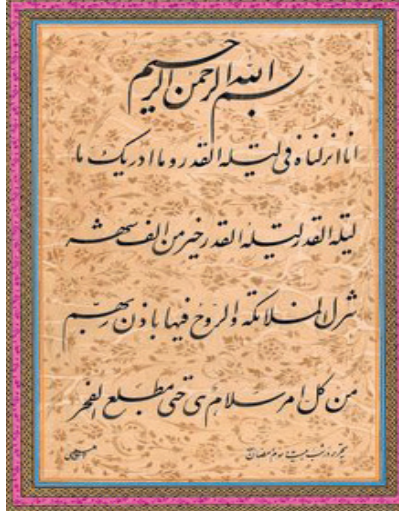 بسم الله الرحمن الرحیم
انا انزلناه فی لیلة القدر و ما ادریک ما
لیلة القدر لیلة القدر خیر من الف شهر
تنزل الملائکة والروح فیها باذن ربهم
من کل امر سلام هی حتی مطلع الفجر